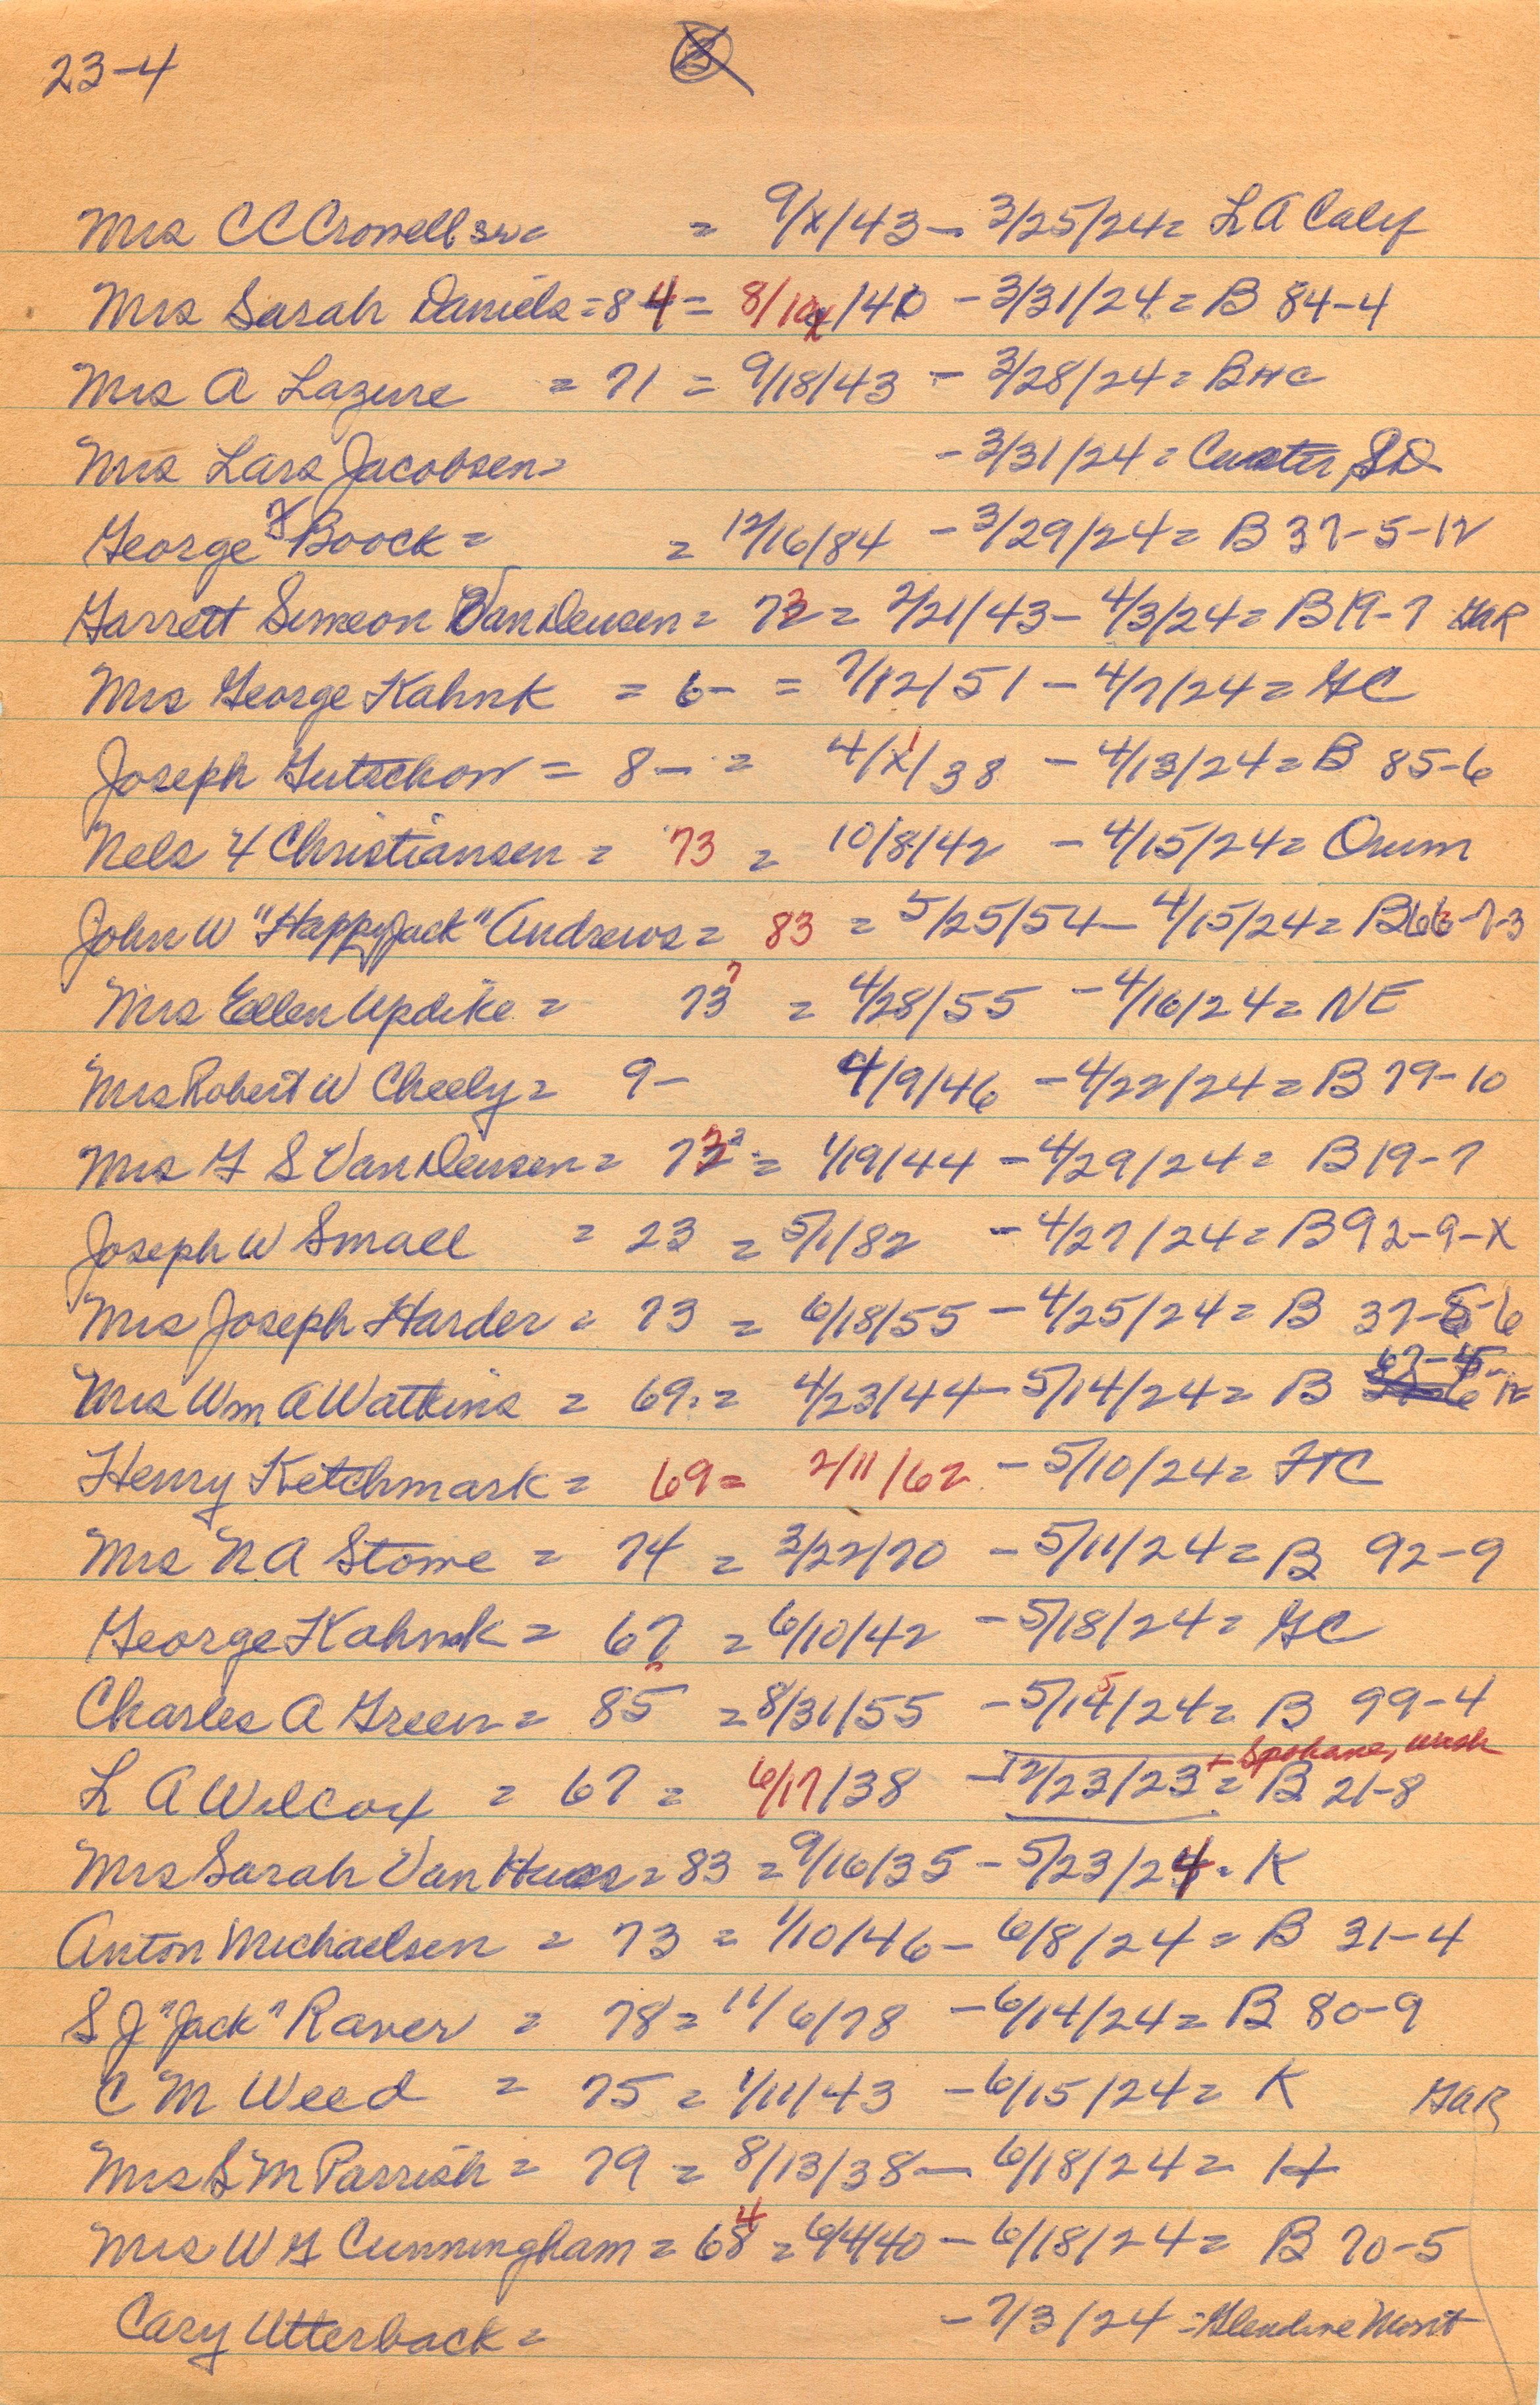 23-4
Mrs C C Crowell Sr = = 9/x/43 - 3/25/24 = L A Calif
Mrs Sarah Daniels = 84 = 8/ /40 - 3/31/24 = B 84-4
Mrs A Lazure = 71 = 9/18/43 - 3/28/24 = BHC
Mrs Lars Jacobsen = - 3/31/24 = Custer, SD
George F Boock = = 12/16/84 - 3/29/24 = B 37-5-12
Garrett Simeon Van Deusen = 73 = 2/21/43 - 4/3/24 = B 19-7 GAR
Mrs George Kahnk = 6- = 7/12/51 - 4/7/24 = GC
Joseph Gutschow = 8- = 4/1/38 - 4/13/24 = B 85-6
Nels Y Christiansen = 73 = 10/8/42 - 4/15/24 = Orum
John W "Happy Jack" Andrews = 83 = 5/25/54 - 4/15/24 = B 66-7-3
Mrs Ellen Updike = 73 ? = 4/28/55 - 4/16/24 = NE
Mrs Robert W Cheely = 9- 4/9/46 - 4/22/24 = B 79-10
Mrs G S Van Deusen = 73 ? = 1/19/44 - 4/29/24 = B 19-7
Joseph W Small = 23 = 5/1/82 - 4/27/24 = B 92-9-X
Mrs Joseph Harder = 73 = 6/18/55 - 4/25/24 = B 37-5-6
Mrs Wm A Watkins = 69 = 4/23/44 - 5/14/24 = B 67-45-12
Henry Ketchmark = 69 = 2/11/62 - 5/10/24 = FTC
Mrs N A Stowe = 74 = 3/22/70 - 5/11/24 = B 92-9
George Kahnk = 67 = 6/10/42 - 5/18/24 = GC
Charles A Green = 85 = 8/31/55 - 5/15/24 = B 99-4
+ Spokane, Wash
L A Wilcox = 67 = 6/17/38 - 12/23/23 = B 21-8
Mrs Sarah Van = 83 = 9/16/35 - 5/23/24 = K
Anton Michaelsen = 73 = 1/10/46 - 6/8/24 = B 31-4
S J "Jack" Raver = 78 = 11/6/78 - 6/14/24 = B 80-9
C M Weed = 75 = 1/11/43 - 6/15/24 = K GAR
Mrs S M Parrish = 79 = 8/13/38 - 6/18/24 = H
Mrs W G Cunningham = 64 = 6/4/40 - 6/18/24 = B 70-5
Cary Utterback = - 7/3/24 = Glendive Mont